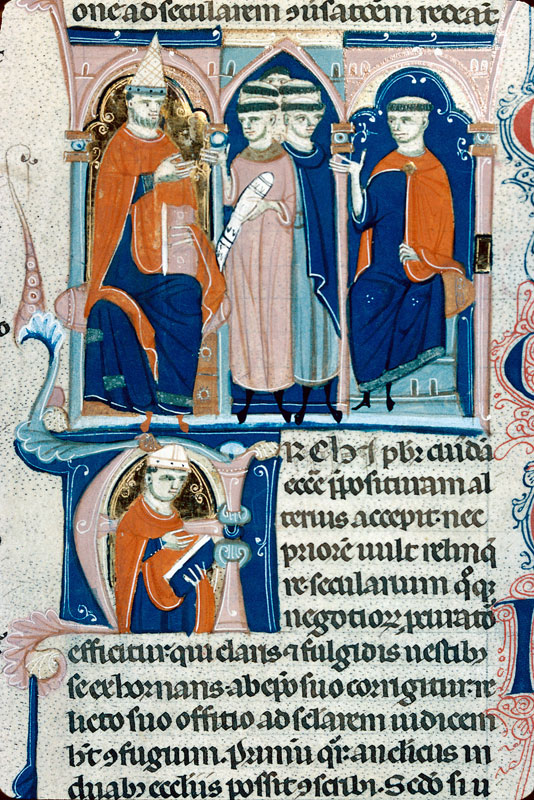 one ad secularem ꝯuersatōem redeat
A RChı p̄br cuiudā
eccē p̄posituram al
terius accepit· nec
priorē uult relinq̄
re· secularium qͦq;
negotioꝝ ꝓcuratͦ
efficitur· qui claris ⁊ fulgidis uestib;
se exhornans· ab ep̄o suo corrigitur· re
licto suo offitio ad sclarem iudicem
h̄t ꝯfugium. Primū q̄r· an clicus in
duab; eccliis possit ꝯscribi. Scd̄o si u